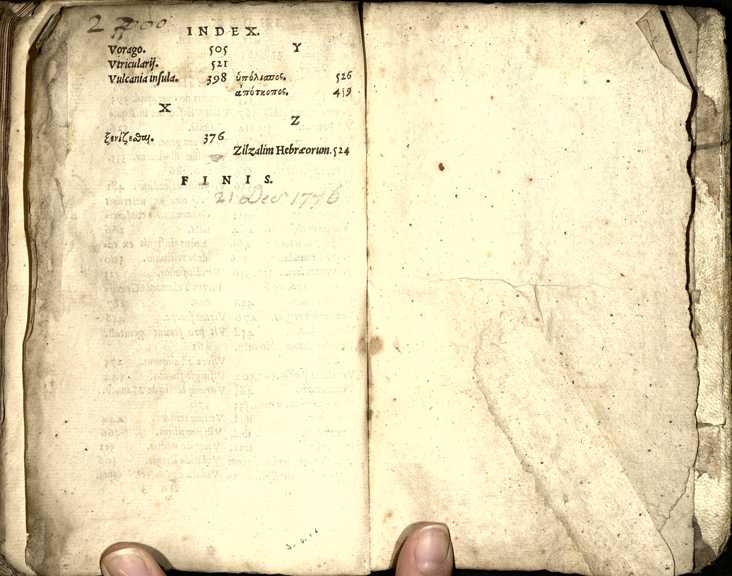 INDEX.
Vorago. 505
Vtricularij. 521
Vulcania insula. 398
X
ξενίζεσθαι. 376
Y
526
Z
Zilzalim Hebræorum. 524
FINIS.
21 Dec 1776